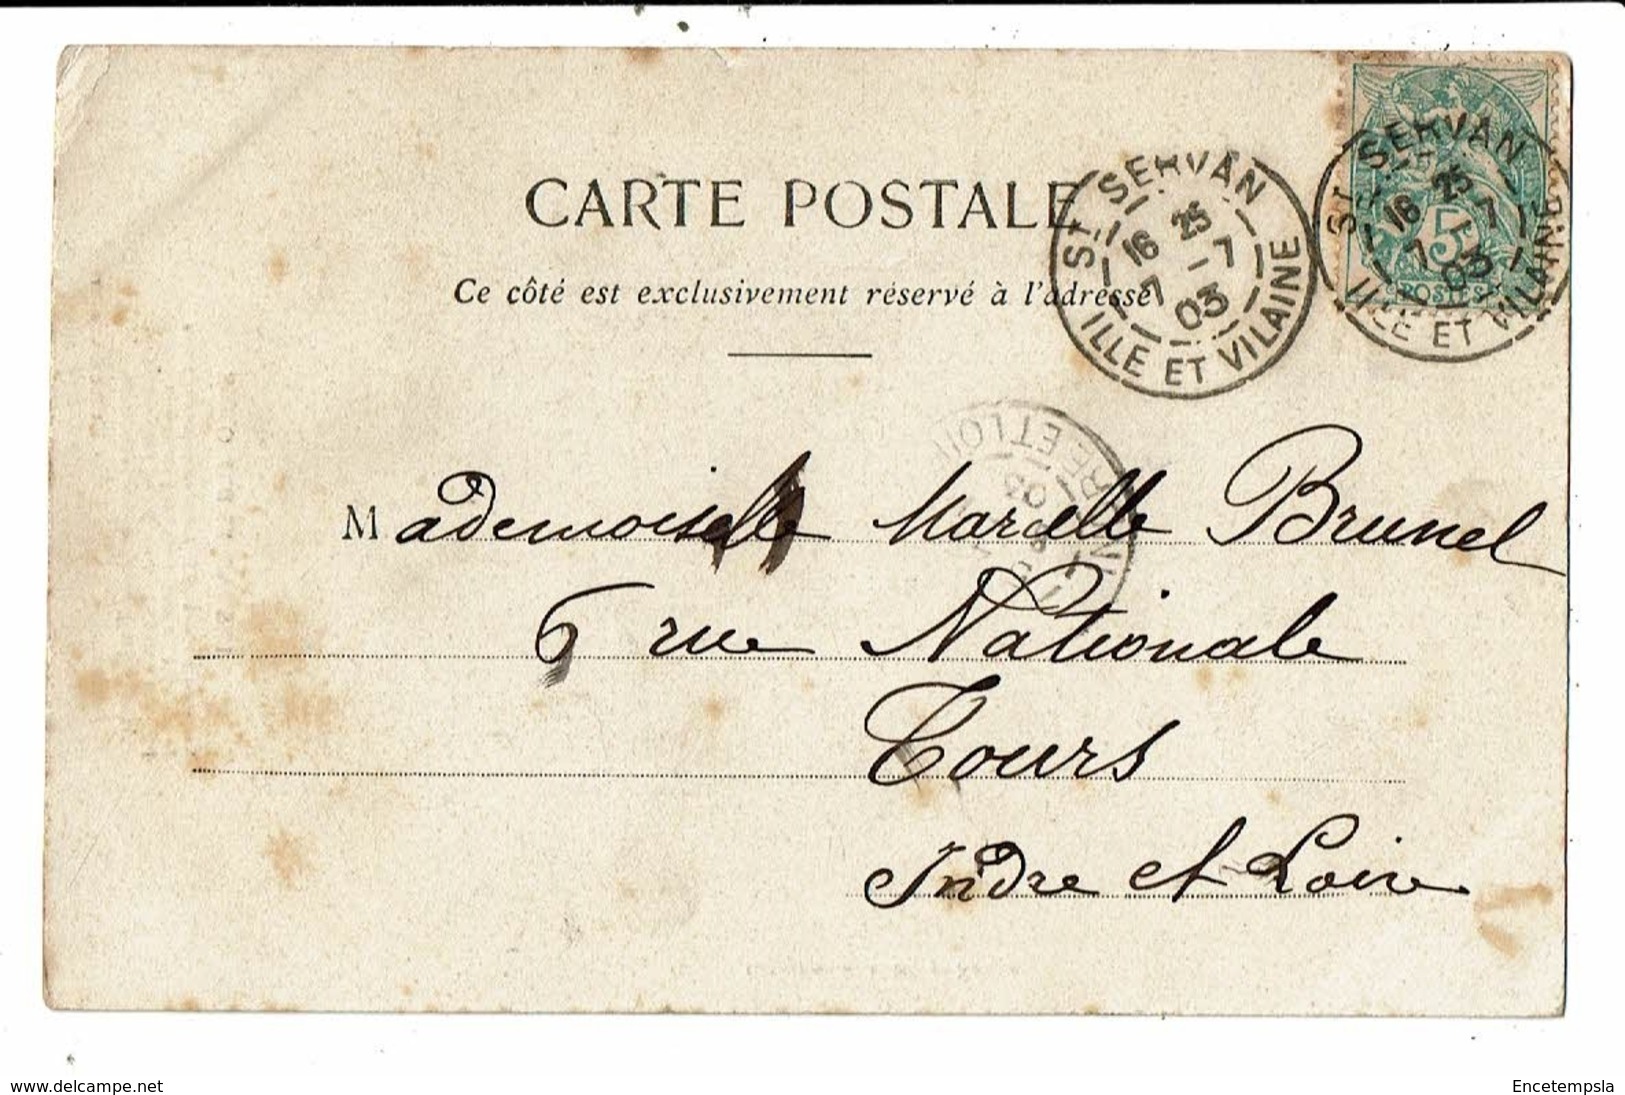 CARTE POSTALE
Ce côté est exclusivement réservé à l'adresse
ST SERVAN
16 25
7 - 7
03
ILLE ET VILAINE
ST SERVAN
16 25
7 - 7
03
ILLE ET VILAINE
5
POSTES
Mademoiselle Marcelle Brunel
6 rue Nationale
Tours
Indre et Loire
www.delcampe.net
Encetempsla